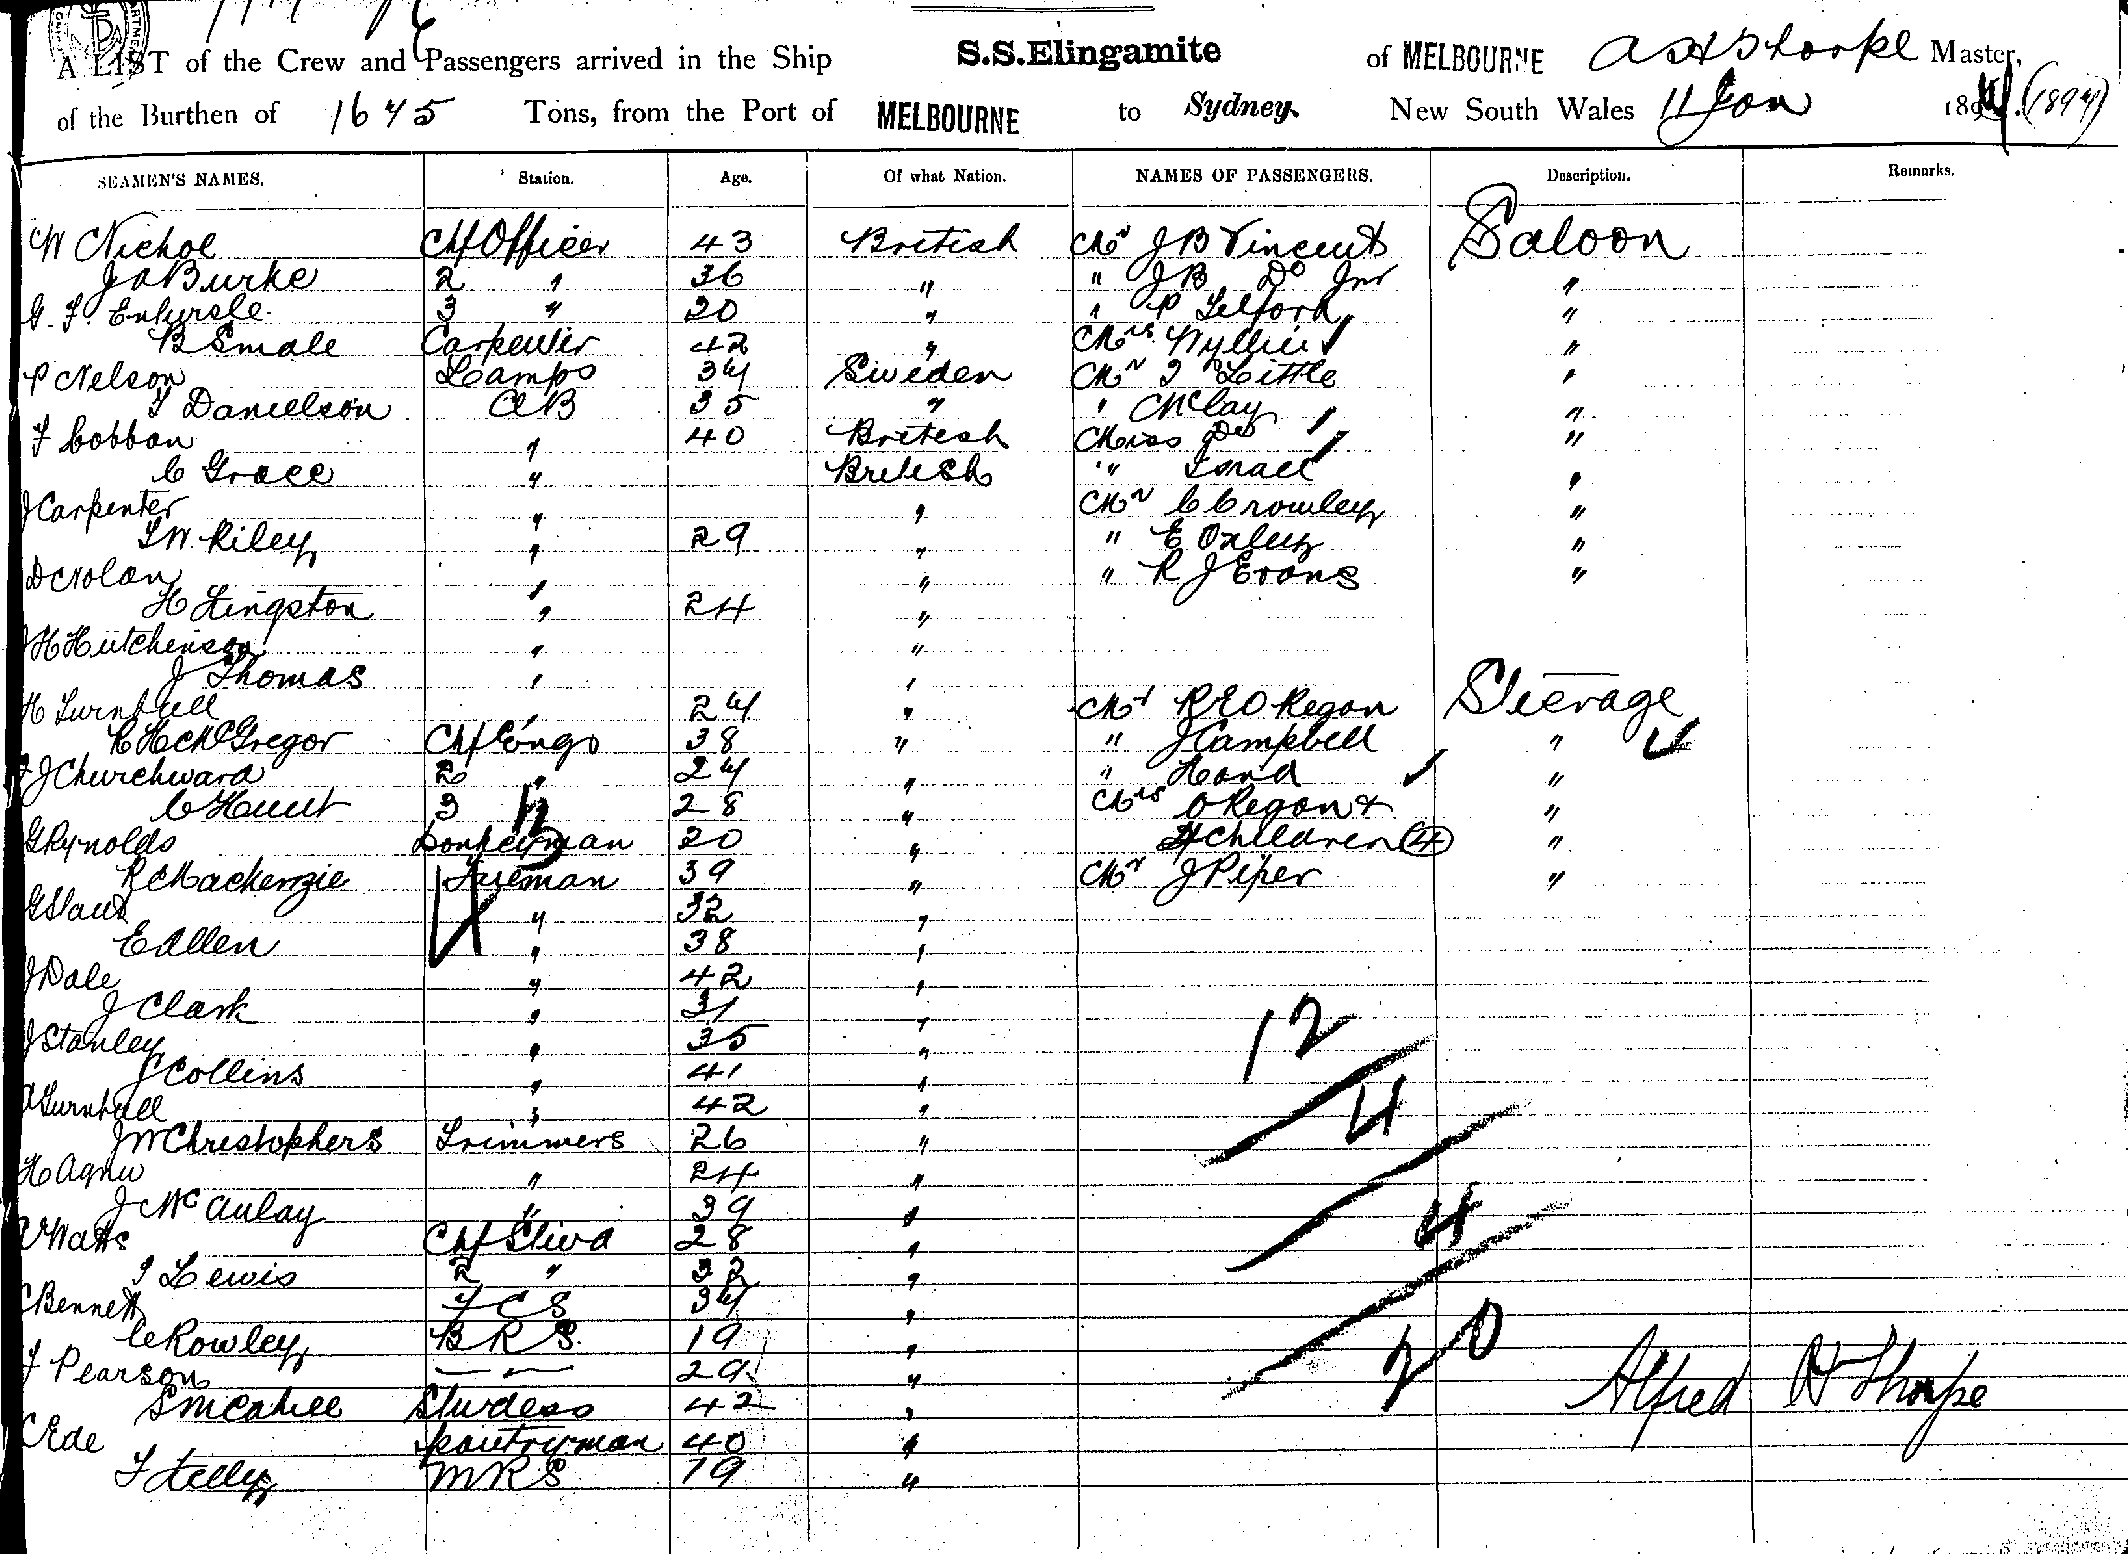 A LIST of the Crew and Passengers arrived in the Ship S.S.Elingamite of MELBOURNE A H Thorpe Master,
of the Burthen of 1675 Tons, from the Port of MELBOURNE to Sydney. New South Wales 11 Jan 189 (1894)
SEAMEN'S NAMES. Station. Age. Of what Nation. NAMES OF PASSENGERS. Description. Remarks.
W Nichol Chf Officer 43 British Mr J B Vincent Saloon
J Burke 2 " 36 " " J B Do Jnr "
G. F. 3 " 20 " " P Telford "
B Smale Carpenter 42 " Mrs Wyllie "
P Nelson Lamps 34 Sweden Mr T Little "
Danielson AB 35 " " McLay "
F Cobban " 40 British Miss Do "
C Grace " British " Israel "
J Carpenter " " Mr C Crowley "
T W Riley " 29 " " E Oxley "
D Nolan " " " R J Evans "
H Kingston " 24 "
J H Hutchinson " "
J Thomas " "
H Turnbull " 24 " Mr R E O Regan Steerage
R H McGregor Chf Eng 38 " " J Campbell "
J Churchward 2 " 24 " " Hand "
C Hunt 3 " 28 " Mrs O Regan + "
G Rynolds Donkeyman 20 " 4 Children (4) "
R Mackenzie Fireman 39 " Mr J Piper "
G " 32 "
E Allen " 38 "
J Dale " 42 "
J Clark " 31 "
J Stanley " 35 "
J Collins " 41 "
A Turnbull " 42 "
J W Christophers Trimmers 26 "
H Agnew " 24 "
J McAulay " 39 "
A Watts Chf Stwd 28 "
J Lewis 2 " 32 "
C Bennett F C S 34 "
C Rowley B R S. 19 "
F Pearson 29 "
S McCahill Stwdess 42 "
C Ede pantryman 40 "
T Kelly M R S 19 "
12
4
4
20
Alfred H Thorpe